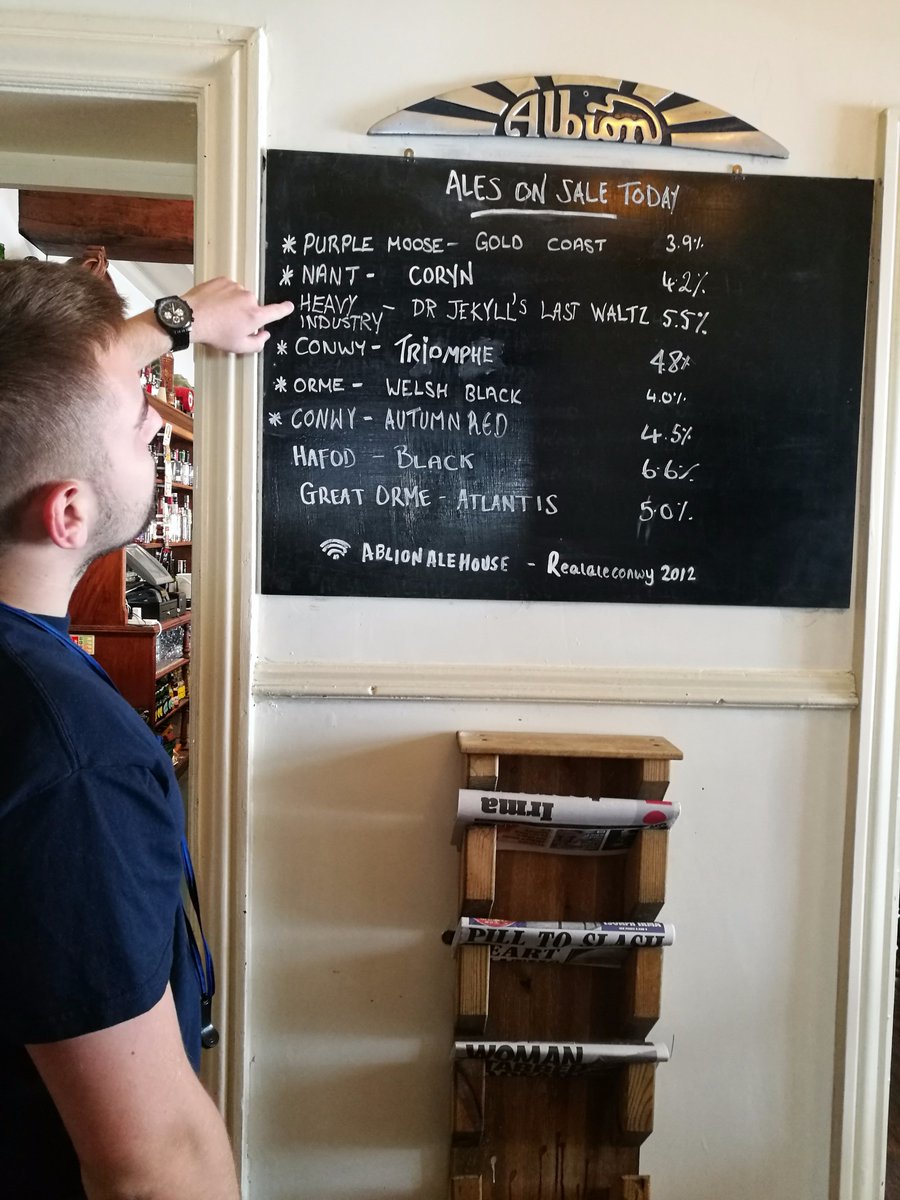 Albion
ALES ON SALE TODAY
* PURPLE MOOSE - GOLD COAST 3.9%
* NANT - CORYN 4.2%
HEAVY INDUSTRY - DR JEKYLL'S LAST WALTZ 5.5%
* CONWY - TRIOMPHE 4.8%
* ORME - WELSH BLACK 4.0%
* CONWY - AUTUMN RED 4.5%
HAFOD - BLACK 6.6%
GREAT ORME - ATLANTIS 5.0%
ABLION ALE HOUSE - Realaleconwy 2012
Irma
PILL TO SLASH
HEART
WOMAN